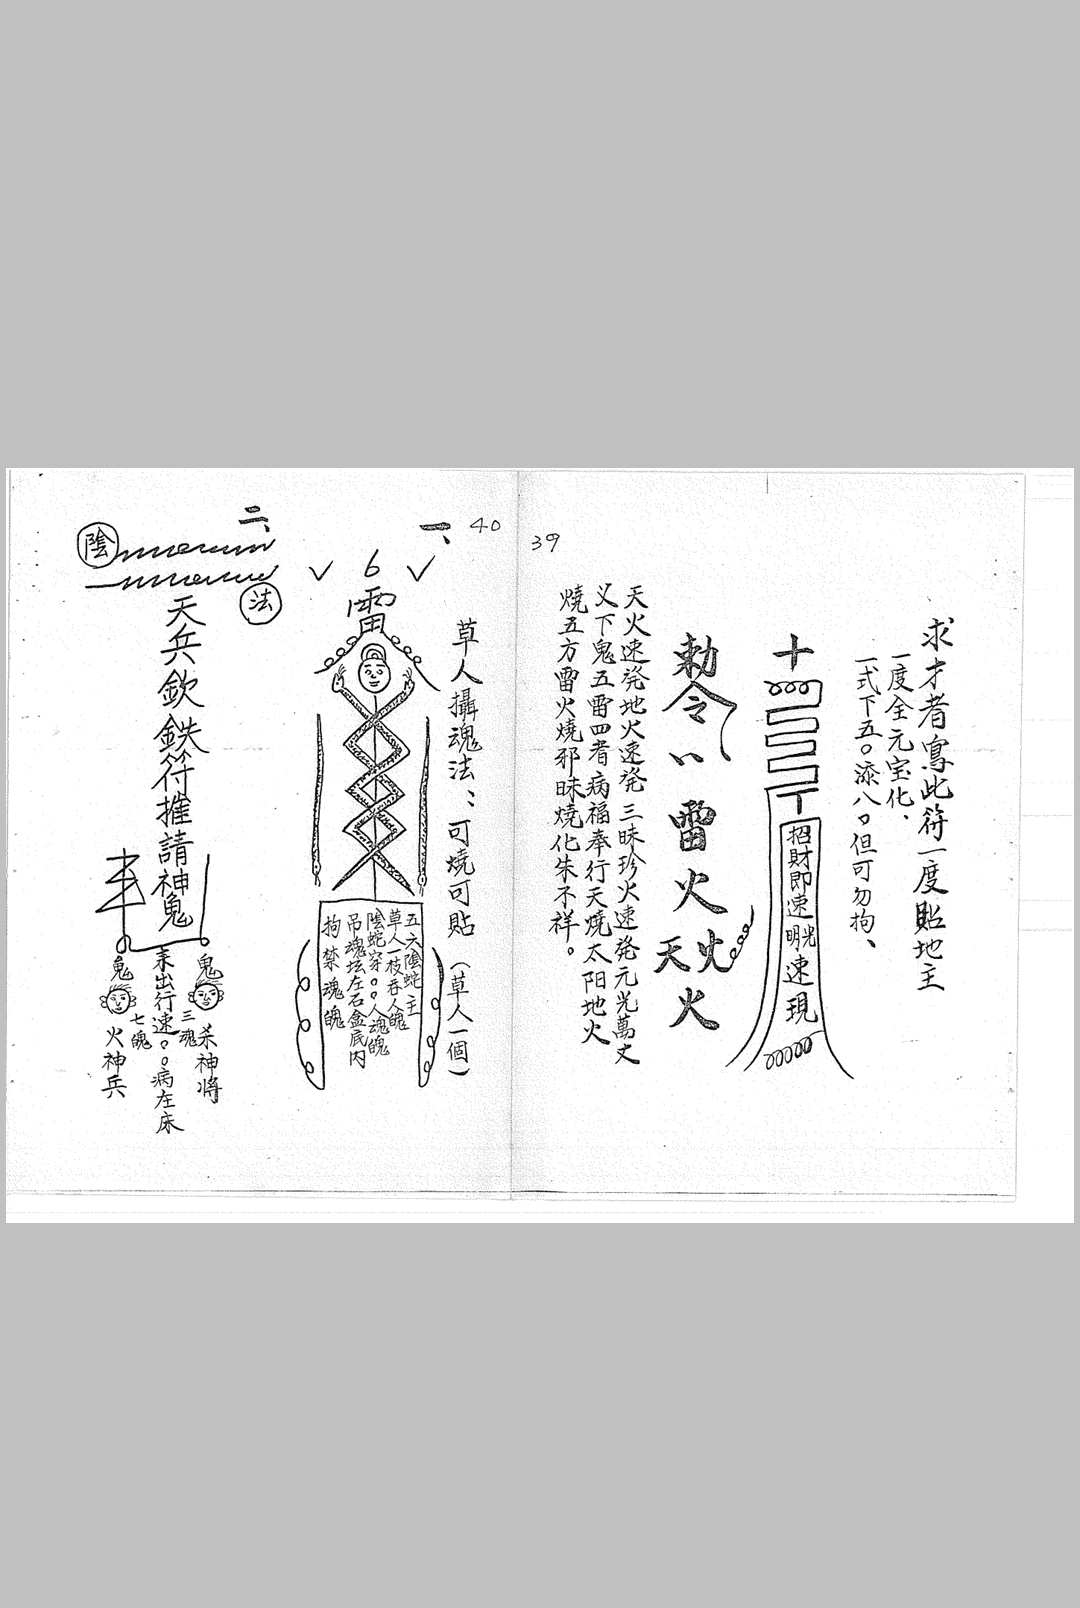 39
求才者寫此符一度貼地主
一度全元宝化、
一式下五〇添八〇但可勿拘、
十
招財即速明光速現
勅令
雷火
天火
火
天火速発地火速発三昧珍火速発元光萬丈
义下鬼五雷四者病福奉行天燒太阳地火
燒五方雷火燒邪昧燒化朱不祥。
40
一、
草人攝魂法：可燒可貼（草人一個）
6
雷
五六陰蛇主
草人一枝吞人魄
陰蛇穿〇〇人魂魄
吊魂坛左石盒底内
拘禁魂魄
二、
陰
法
天兵欽鉄符推請神鬼
鬼
三魂
杀神將
出行速〇〇病在床
七魄
鬼
火神兵